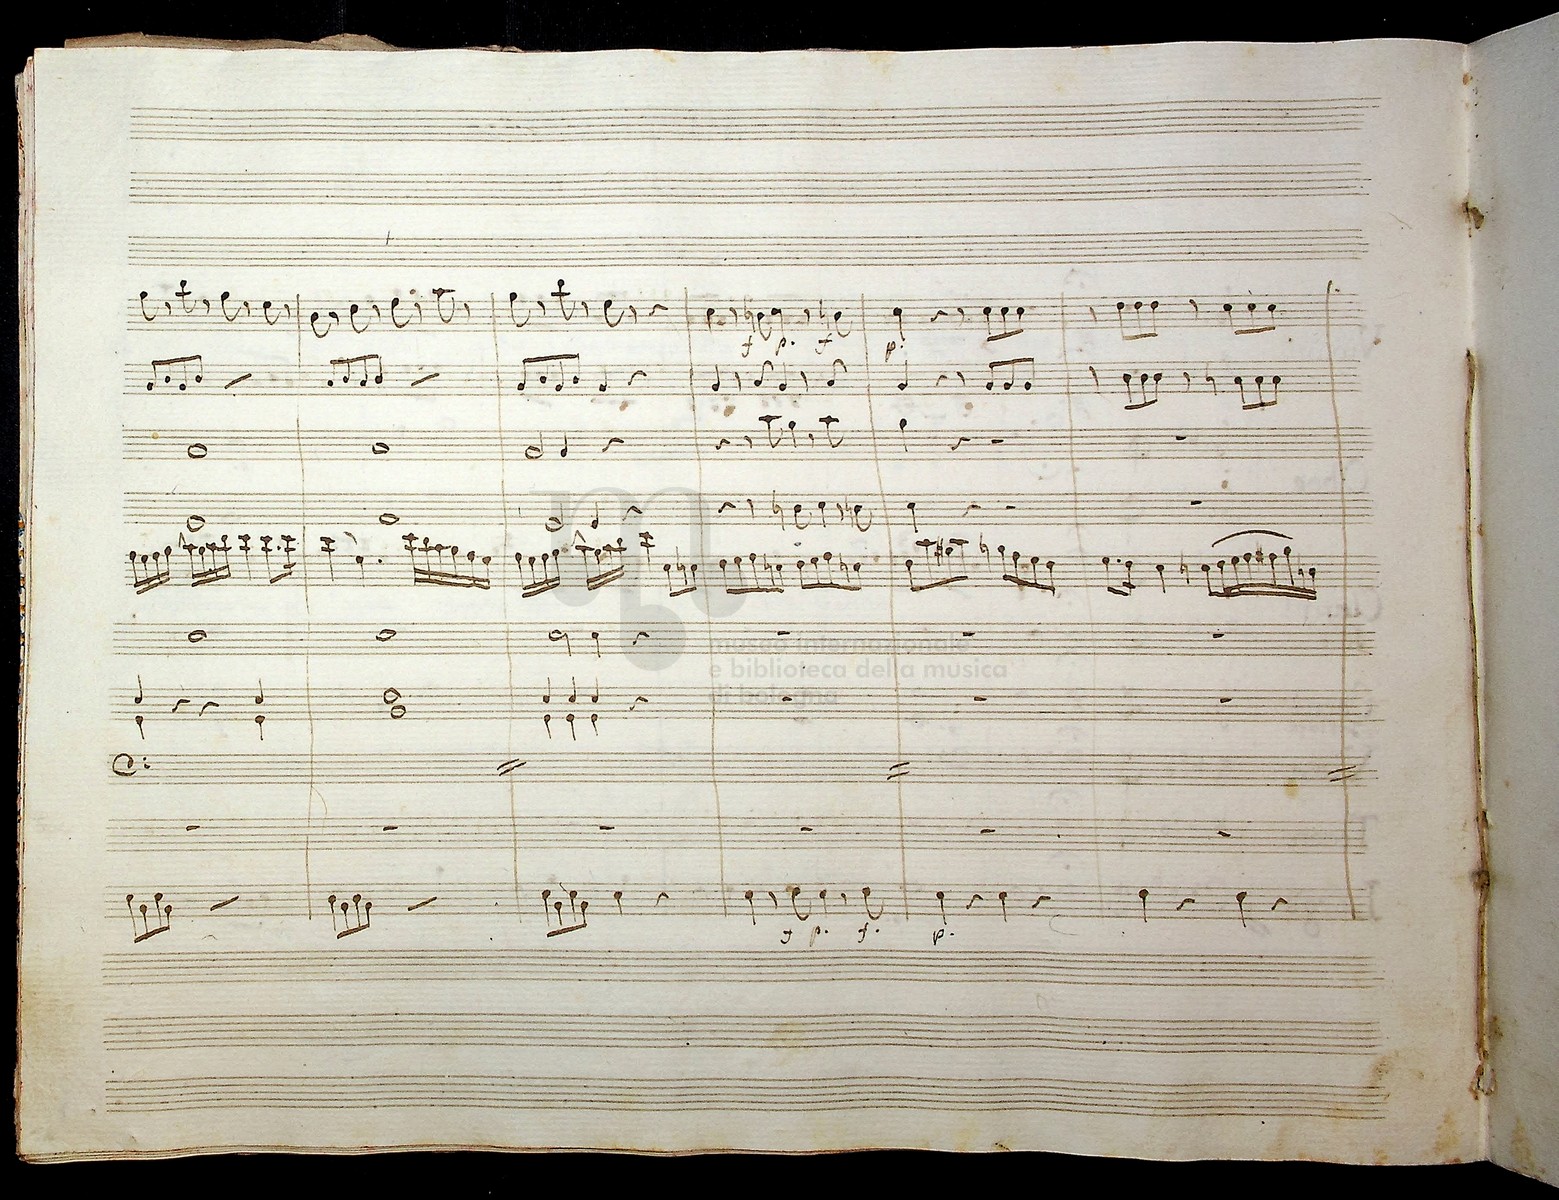 f p. f p.
museo internazionale
e biblioteca della musica
di bologna
f p. f. p.